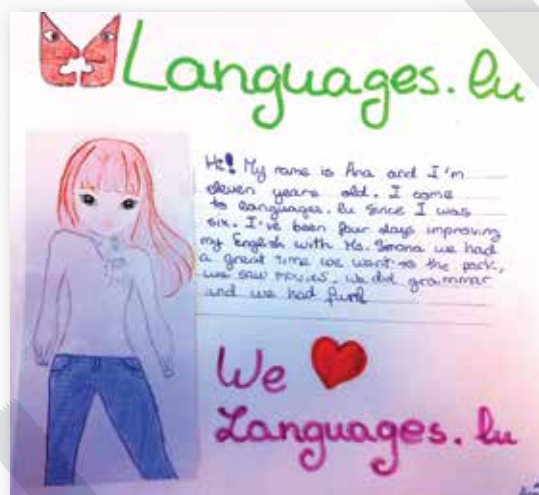 Languages.lu
Hi! My name is Ana and I'm
eleven years old. I come
to languages.lu since I was
six. I've been four days improving
my English with Ms. Simona we had
a great time we want to the park,
we saw movies, we did grammar
and we had fun!
We ❤
Languages.lu